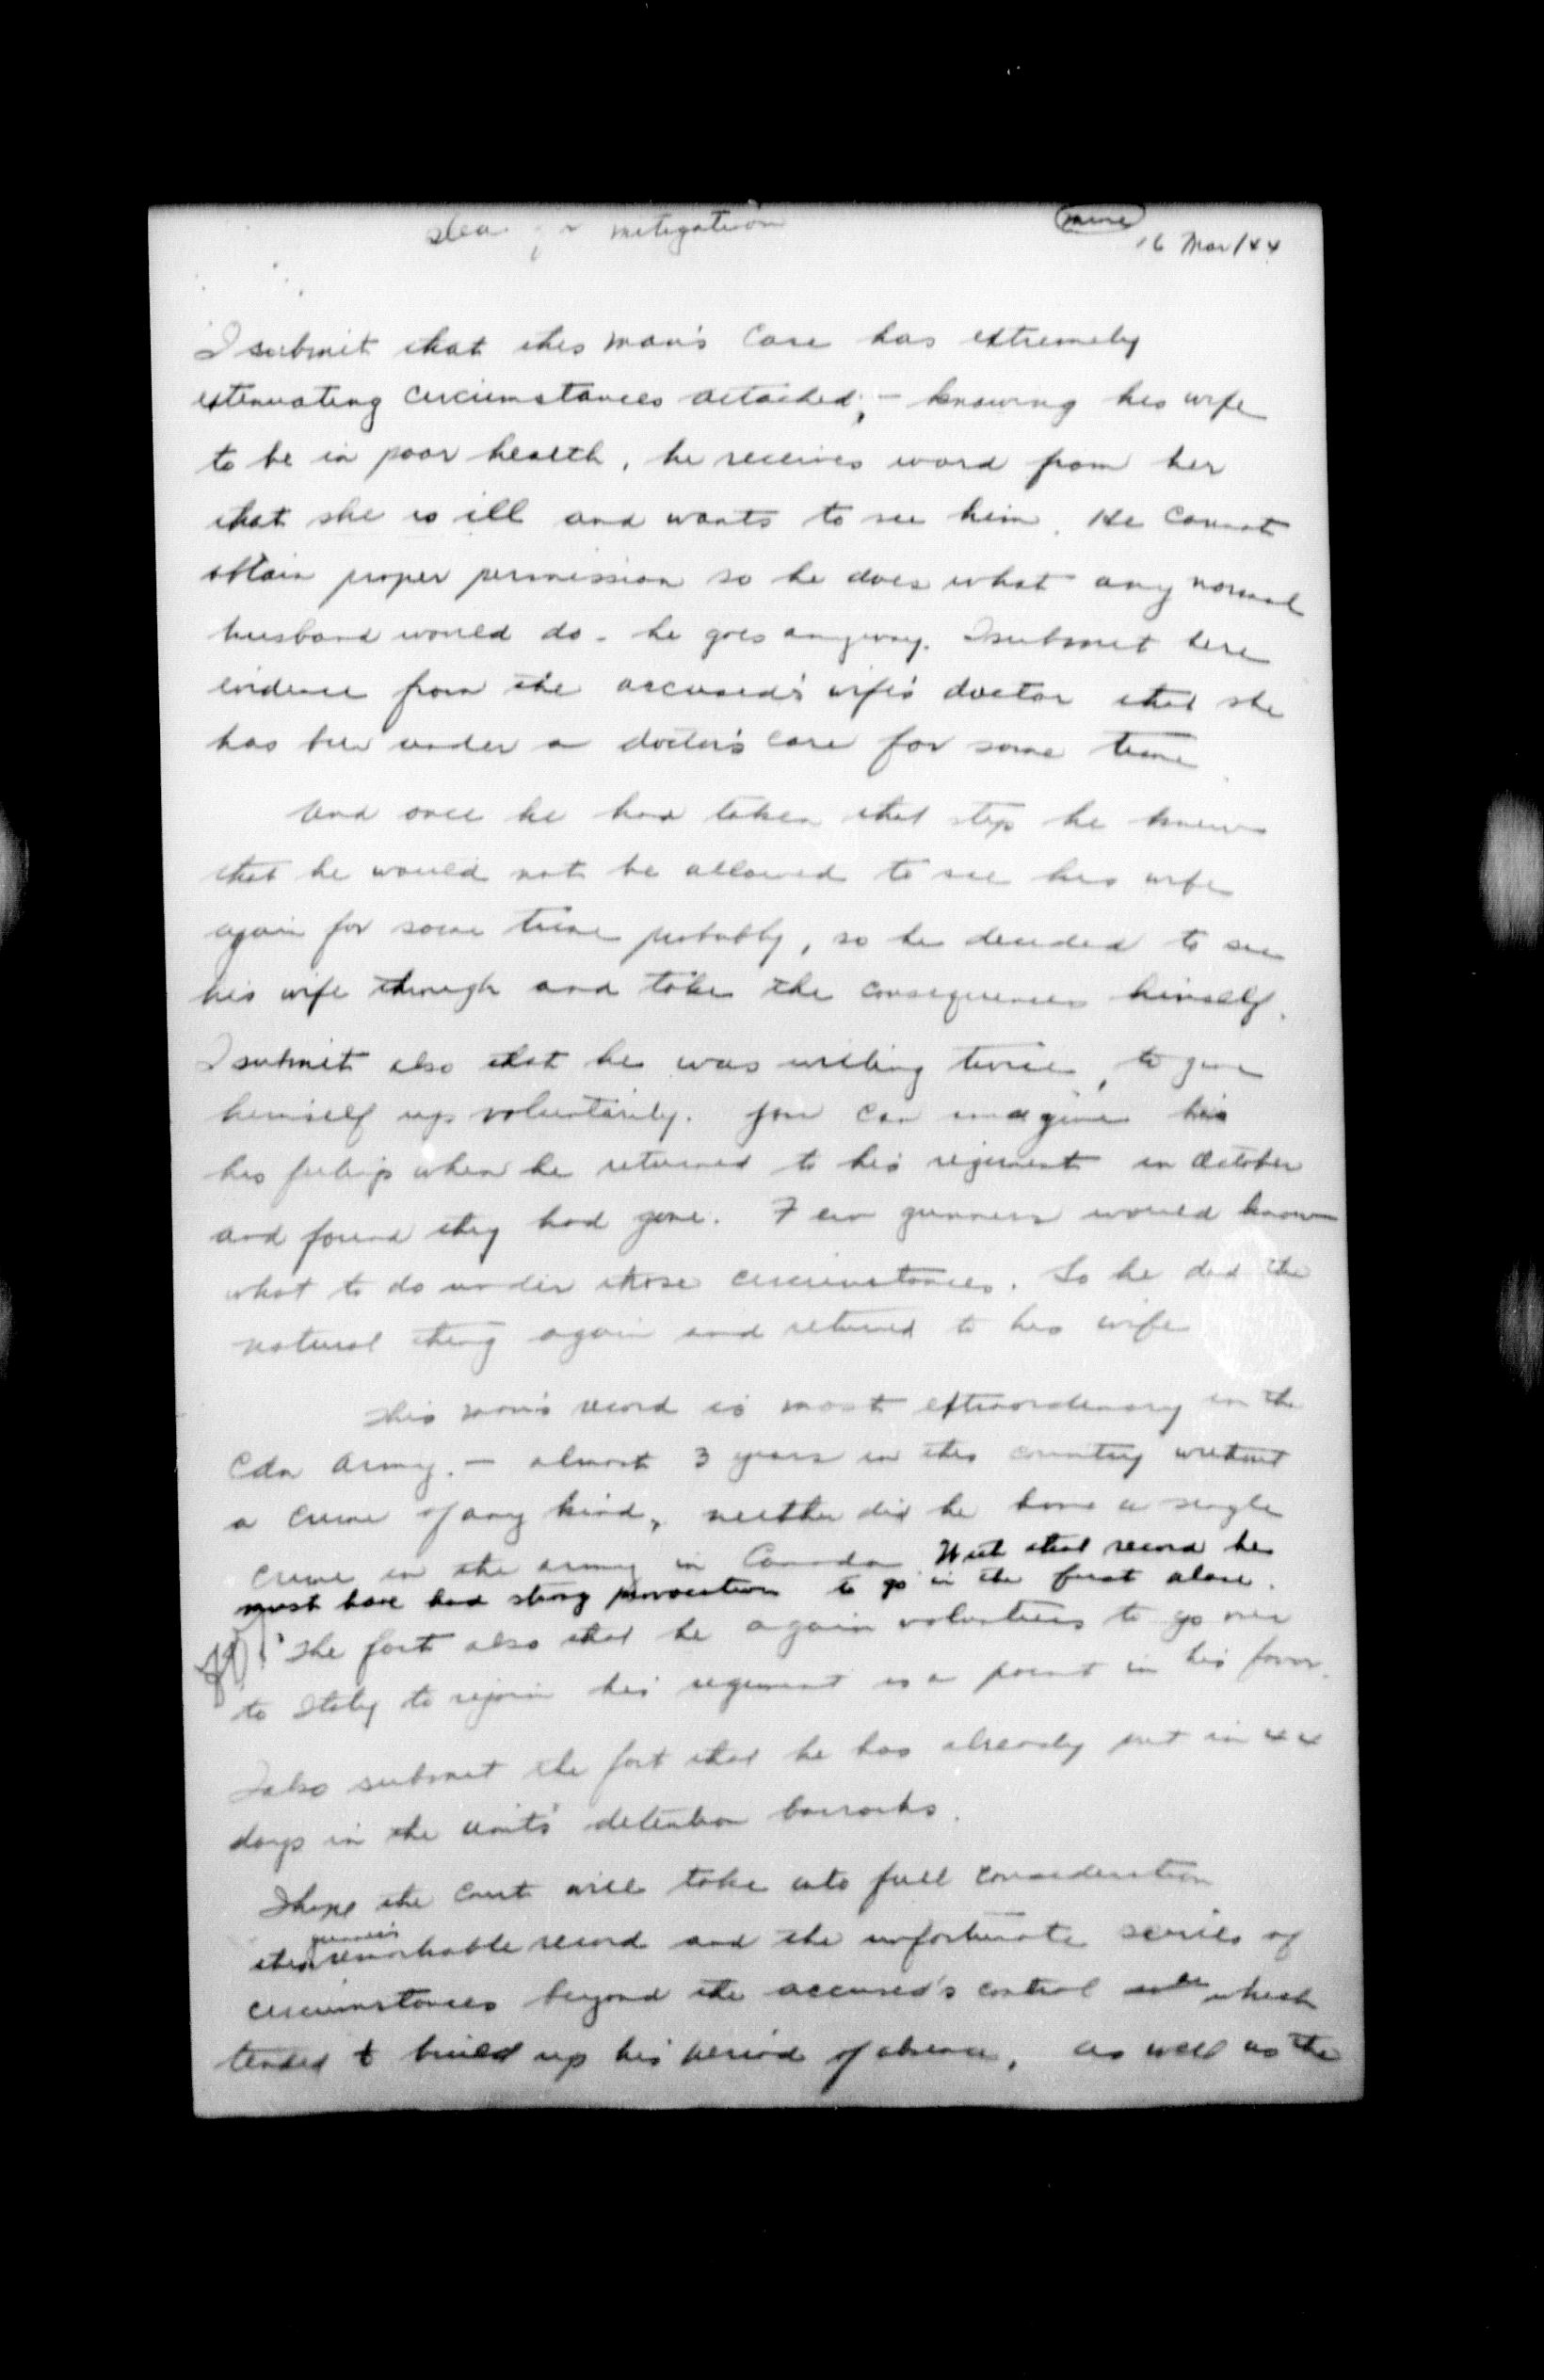 plea in mitigation
mine
16 Mar/44
I submit that this man's case has extremely
extenuating circumstances attached; - knowing his wife
to be in poor health, he receives word from her
that she is ill and wants to see him. He cannot
obtain proper permission so he does what any normal
husband would do - he goes anyway. I submit here
evidence from the accused's wife's doctor that she
has been under a doctor's care for some time
And once he had taken that step he knew
that he would not be allowed to see his wife
again for some time probably, so he decided to see
his wife through and take the consequences himself.
I submit also that he was willing twice, to give
himself up voluntarily. You can imagine his
his feelings when he returned to his regiment in October
and found they had gone. Few gunners would know
what to do under those circumstances. So he did the
natural thing again and returned to his wife
This man's record is most extraordinary in the
Cdn Army. - almost 3 years in this country without
a crime of any kind, neither did he have a single
crime in the army in Canada With that record he
must have had strong provocation to go in the first place.
The fact also that he again volunteers to go over
to Italy to rejoin his regiment is a point in his favor.
I also submit the fact that he has already put in 44
days in the unit's detention barracks.
I hope the court will take into full consideration
gunner's
this remarkable record and the unfortunate series of
circumstances beyond the accused's control which
tended to build up his period of absence, as well as the